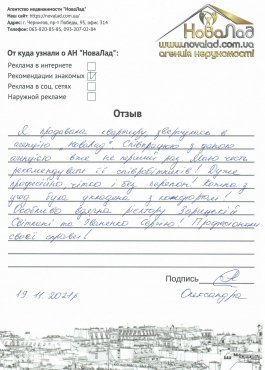 Агентство недвижимости "НоваЛад"
Наш сайт: https://novalad.com.ua/
Адрес: г. Чернигов, пр-т Победы, 95, офис 314
Телефон: 063-820-85-85, 093-207-02-84
НоваЛад
www.novalad.com.ua
агенція нерухомості
От куда узнали о АН "НоваЛад":
Реклама в интернете
Рекомендации знакомых
Реклама в соц. сетях
Наружной рекламе
Отзыв
Я продавала квартиру, звернулась в
агенцію "НоваЛад". Співпрацюю з даною
агенцією вже не перший раз. Маю честь
рекомендувати її співробітників! Дуже
професійно, чітко і без перепон! Кожна з
угод була укладена з комфортом!
Особливо вдячна ріелтору Зарицькій
Світлані та Іваненко Сергію! Професіонали
своєї справи!
Подпись
19.11.2021р
Олександра